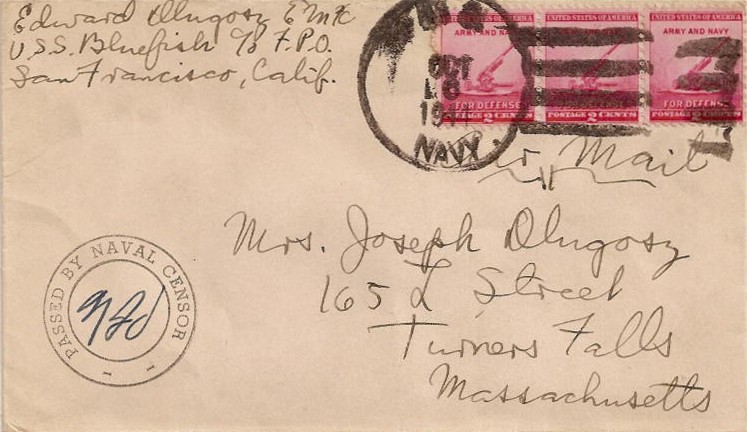 Edward Dlugosz EM2c
U.S.S. Bluefish c/o F.P.O.
San Francisco, Calif.
UNITED STATES OF AMERICA UNITED STATES OF AMERICA UNITED STATES OF AMERICA
ARMY AND NAVY ARMY AND NAVY ARMY AND NAVY
FOR DEFENSE FOR DEFENSE FOR DEFENSE
POSTAGE 2 CENTS POSTAGE 2 CENTS POSTAGE 2 CENTS
OCT
NAVY
Air Mail
Mrs. Joseph Dlugosz
165 L Street
Turners Falls
Massachusetts
PASSED BY NAVAL CENSOR